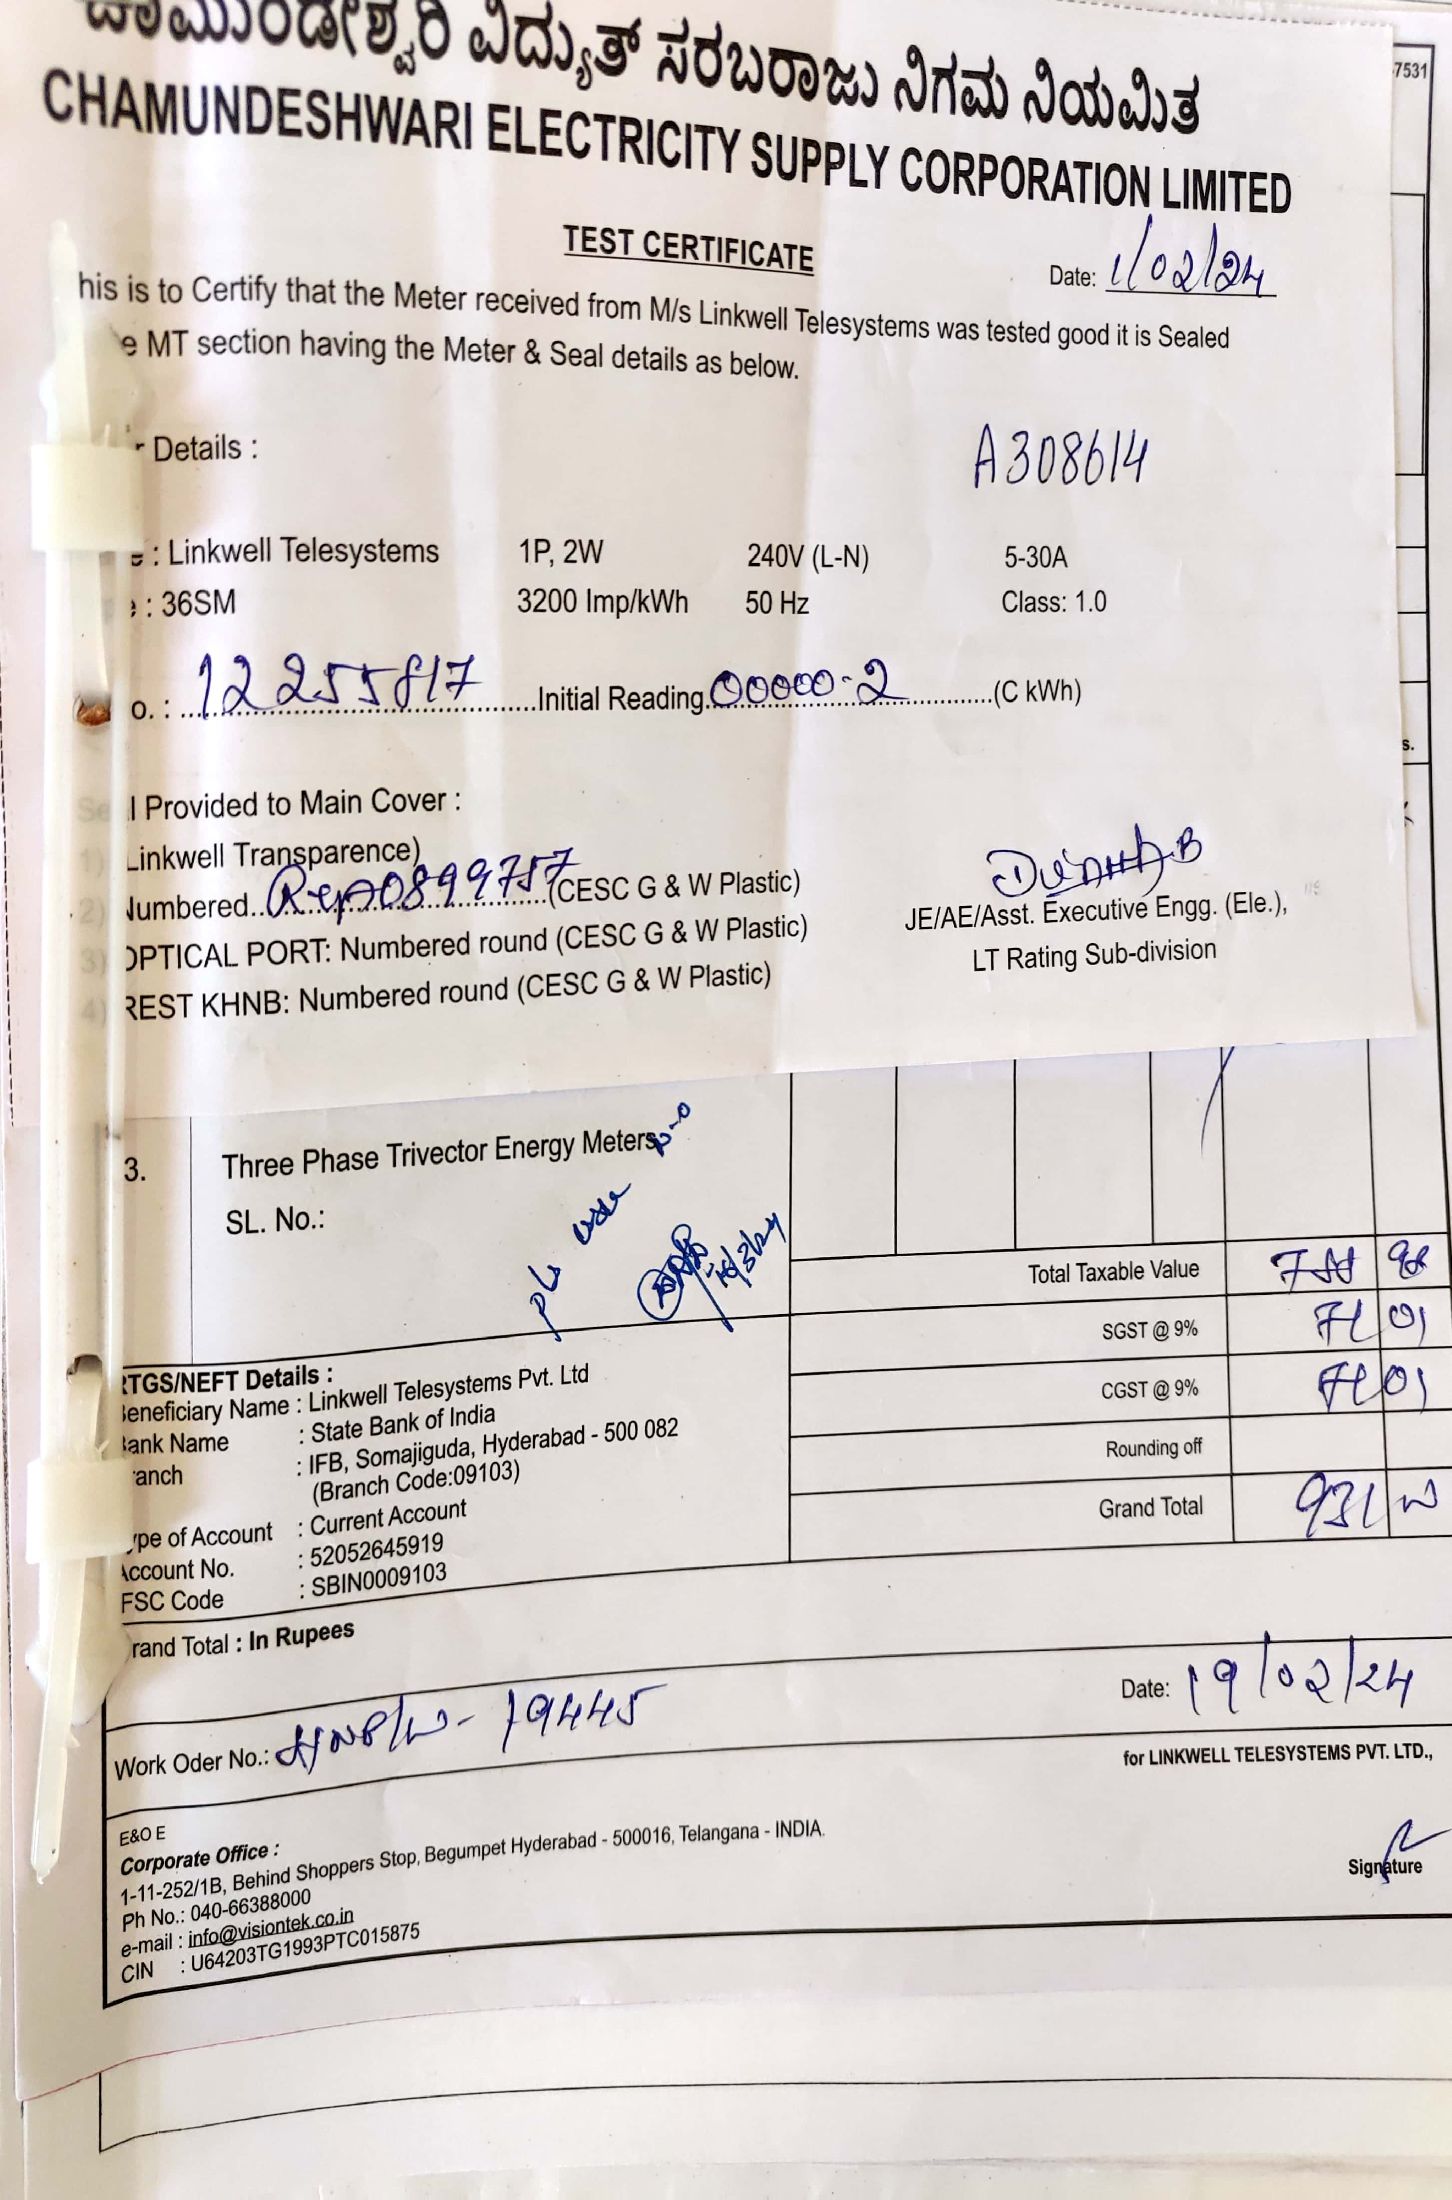 ಚಾಮುಂಡೇಶ್ವರಿ ವಿದ್ಯುತ್ ಸರಬರಾಜು ನಿಗಮ ನಿಯಮಿತ
7531
CHAMUNDESHWARI ELECTRICITY SUPPLY CORPORATION LIMITED
TEST CERTIFICATE
Date: 1/02/24
his is to Certify that the Meter received from M/s Linkwell Telesystems was tested good it is Sealed
e MT section having the Meter & Seal details as below.
r Details :
A308614
: Linkwell Telesystems 1P, 2W 240V (L-N) 5-30A
: 36SM 3200 Imp/kWh 50 Hz Class: 1.0
o. : 12255817 Initial Reading 00000-2 (C kWh)
s.
Se l Provided to Main Cover :
1) Linkwell Transparence)
2) Numbered 0899757 (CESC G & W Plastic)
3) OPTICAL PORT: Numbered round (CESC G & W Plastic)
4) REST KHNB: Numbered round (CESC G & W Plastic)
JE/AE/Asst. Executive Engg. (Ele.),
LT Rating Sub-division
3. Three Phase Trivector Energy Meters
SL. No.:
Total Taxable Value
SGST @ 9% 71 01
CGST @ 9% 71 01
Rounding off
Grand Total 931
RTGS/NEFT Details :
Beneficiary Name : Linkwell Telesystems Pvt. Ltd
Bank Name : State Bank of India
ranch : IFB, Somajiguda, Hyderabad - 500 082
(Branch Code:09103)
ype of Account : Current Account
Account No. : 52052645919
FSC Code : SBIN0009103
rand Total : In Rupees
Date: 19/02/24
Work Oder No.: 19445
for LINKWELL TELESYSTEMS PVT. LTD.,
E&O E
Corporate Office :
1-11-252/1B, Behind Shoppers Stop, Begumpet Hyderabad - 500016, Telangana - INDIA.
Ph No.: 040-66388000
e-mail : info@visiontek.co.in
CIN : U64203TG1993PTC015875
Signature